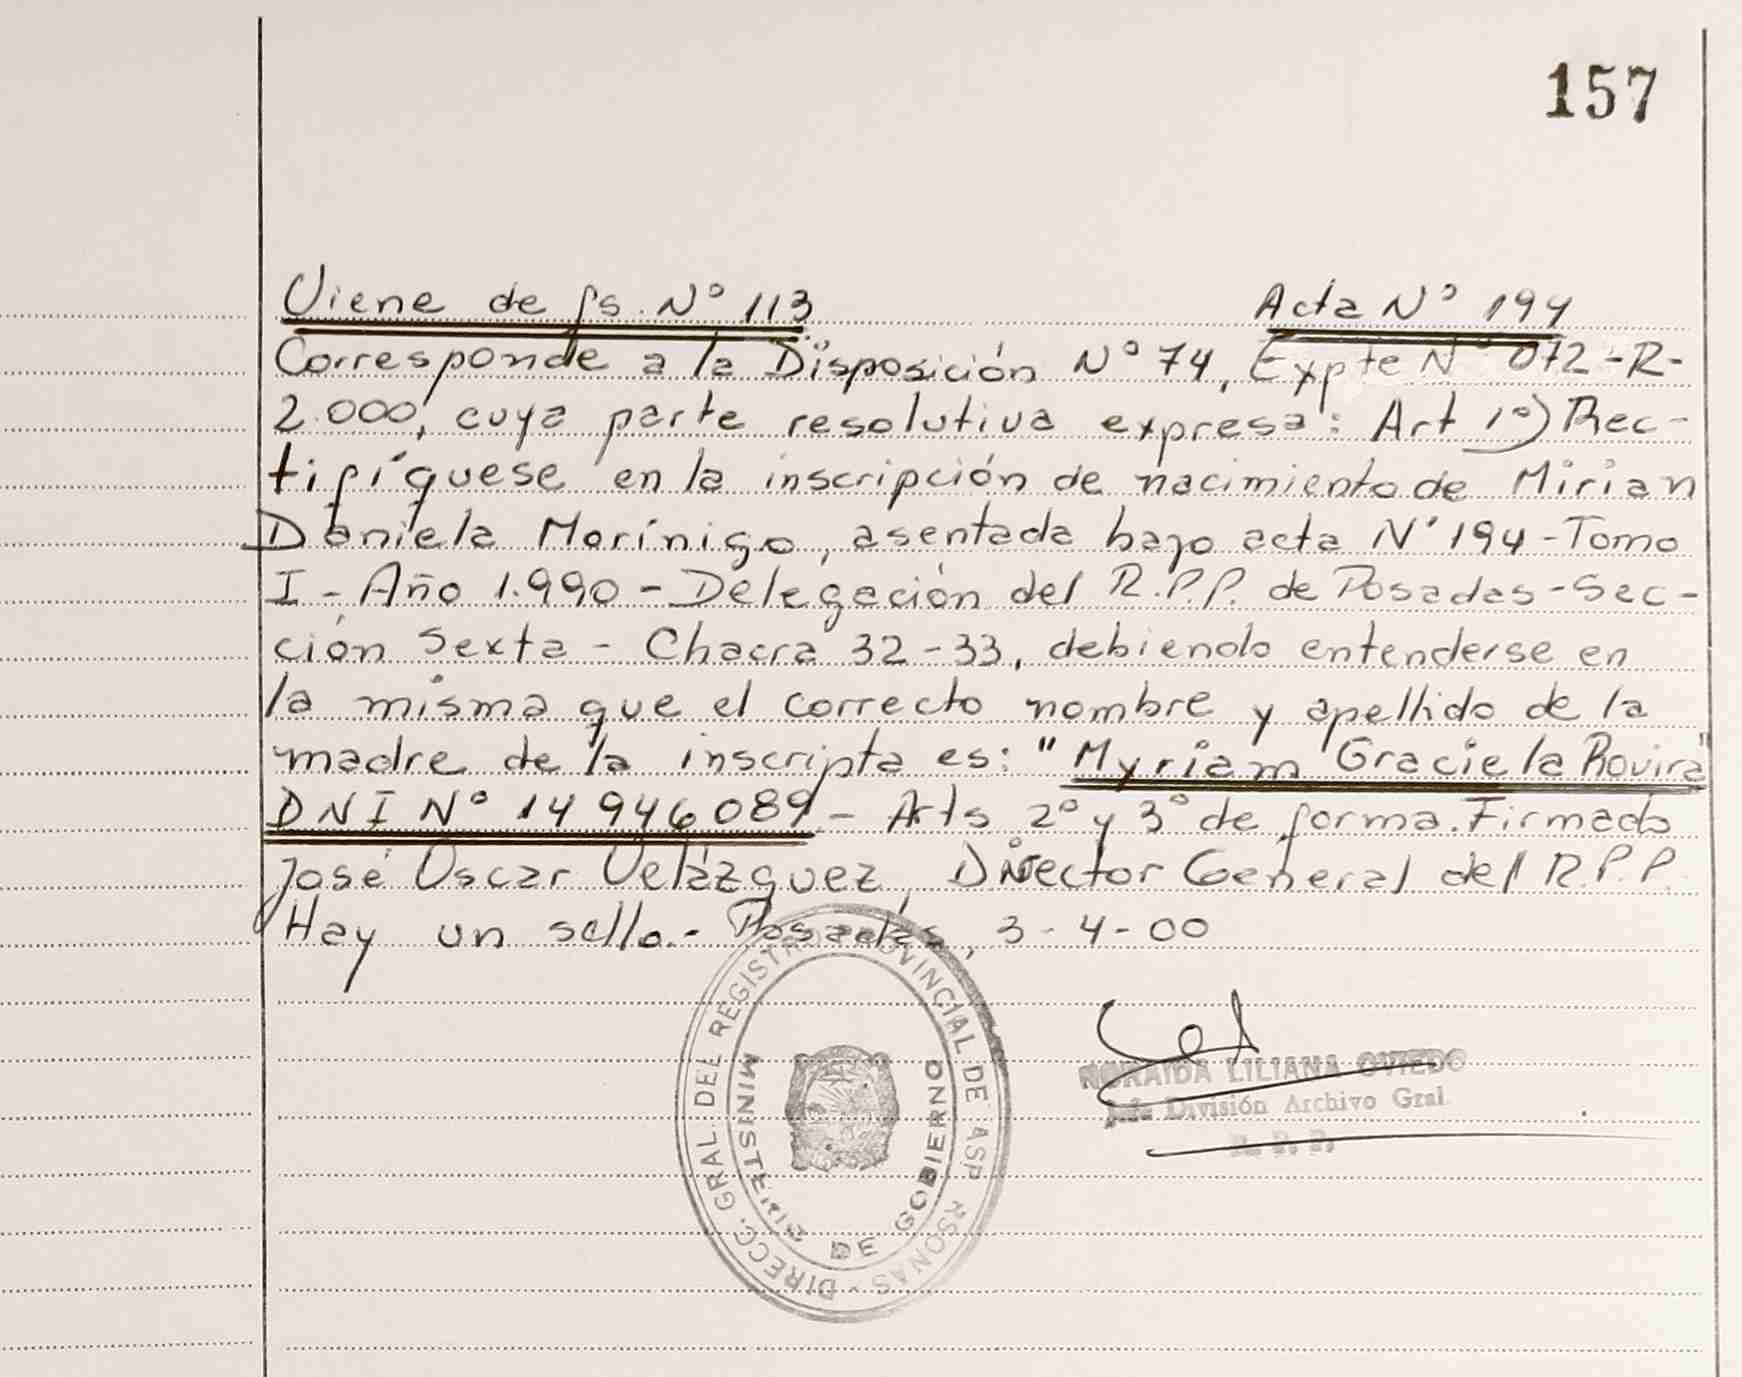 157
Viene de fs. Nº 113 Acta Nº 194
Corresponde a la Disposición Nº 74, Expte Nº 072-R-
2.000, cuya parte resolutiva expresa: Art 1º) Rec-
tifíquese en la inscripción de nacimiento de Mirian
Daniela Morínigo, asentada bajo acta Nº 194 - Tomo
I - Año 1.990 - Delegación del R.P.P. de Posadas - Sec-
ción Sexta - Chacra 32-33, debiendo entenderse en
la misma que el correcto nombre y apellido de la
madre de la inscripta es: "Myriam Graciela Rovira"
DNI Nº 14946089 - Arts 2º y 3º de forma. Firmado
José Oscar Velázquez, Director General del R.P.P.
Hay un sello.- Posadas, 3-4-00
DIRECC. GRAL DEL REGISTRO PROVINCIAL DE PERSONAS -
MINISTERIO DE GOBIERNO
NORAIDA LILIANA OVIEDO
Jefe División Archivo Gral.
R. P. P.